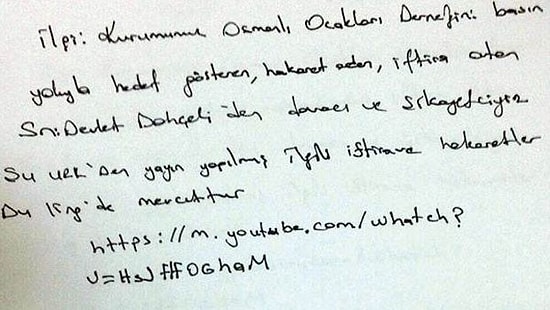 ilgi: Kurumumuz Osmanlı Ocakları Derneğini basın
yoluyla hedef gösteren, hakaret eden, iftira atan
Sn: Devlet Bahçeli'den davacı ve şikayetçiyiz
Şu URL'den yayın yapılmış ilgili iftira ve hakaretler
Bu ling'de mevcuttur
https://m.youtube.com/whatch?
v=HsJffF0GhqM